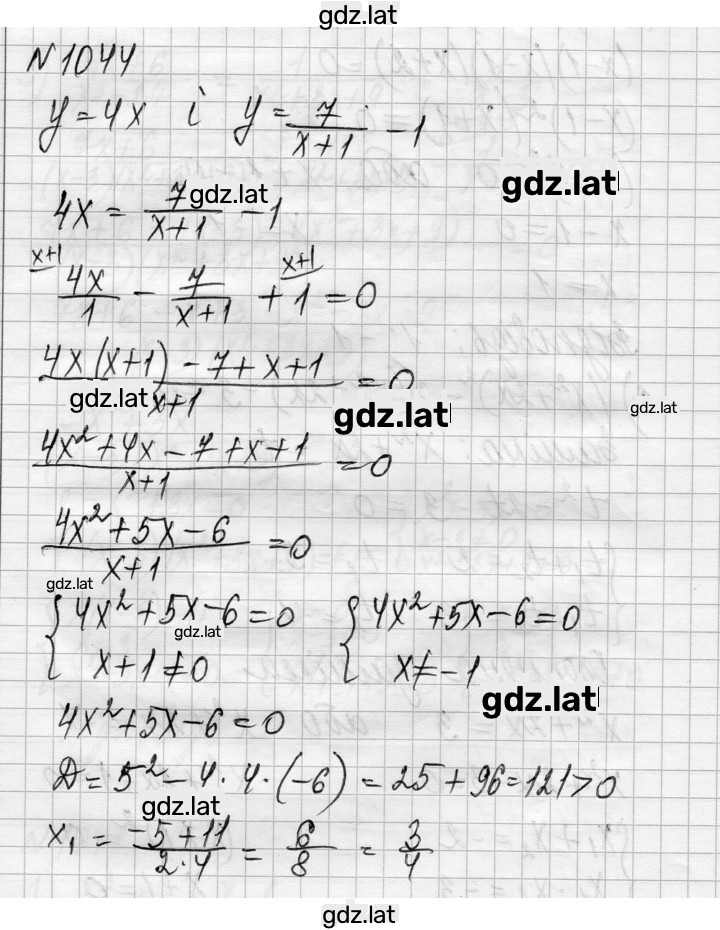 gdz.lat
N 1044
y = 4x і y = 7/(x+1) - 1
gdz.lat
4x = 7/(x+1) - 1
gdz.lat
x+1 x+1
4x/1 - 7/(x+1) + 1 = 0
(4x(x+1) - 7 + x + 1)/(x+1) = 0
gdz.lat gdz.lat gdz.lat
(4x² + 4x - 7 + x + 1)/(x+1) = 0
(4x² + 5x - 6)/(x+1) = 0
gdz.lat
{ 4x² + 5x - 6 = 0 { 4x² + 5x - 6 = 0
gdz.lat
x + 1 ≠ 0 x ≠ -1
gdz.lat
4x² + 5x - 6 = 0
D = 5² - 4 · 4 · (-6) = 25 + 96 = 121 > 0
gdz.lat
x₁ = (-5 + 11)/(2·4) = 6/8 = 3/4
gdz.lat